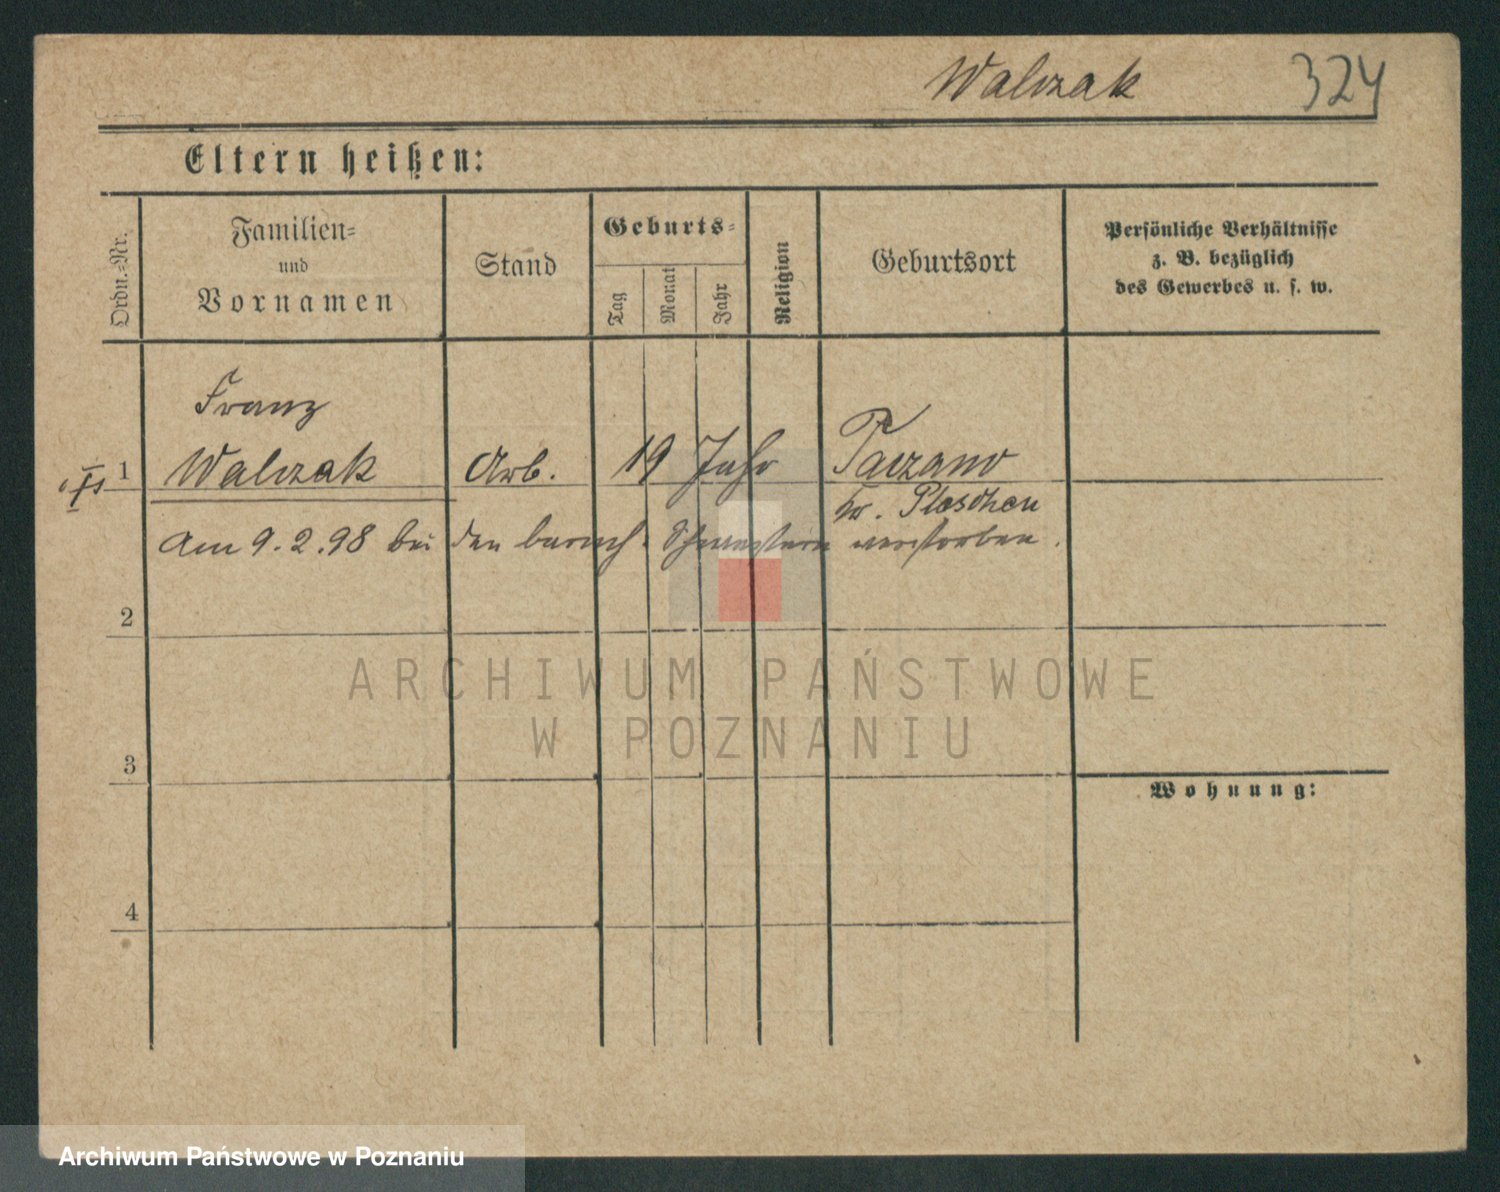 Walczak 324
Eltern heißen:
Ordn.=Nr.
Familien=
und
Vornamen
Stand
Geburts=
Tag
Monat
Jahr
Religion
Geburtsort
Persönliche Verhältnisse
z. B. bezüglich
des Gewerbes u. s. w.
Franz
1 Walczak Arb. 19 Jahr
Kr. Pleschen
Am 9.2.98 bei den barmh. Schwestern verstorben.
2
3
4
Wohnung:
ARCHIWUM PAŃSTWOWE
W POZNANIU
Archiwum Państwowe w Poznaniu